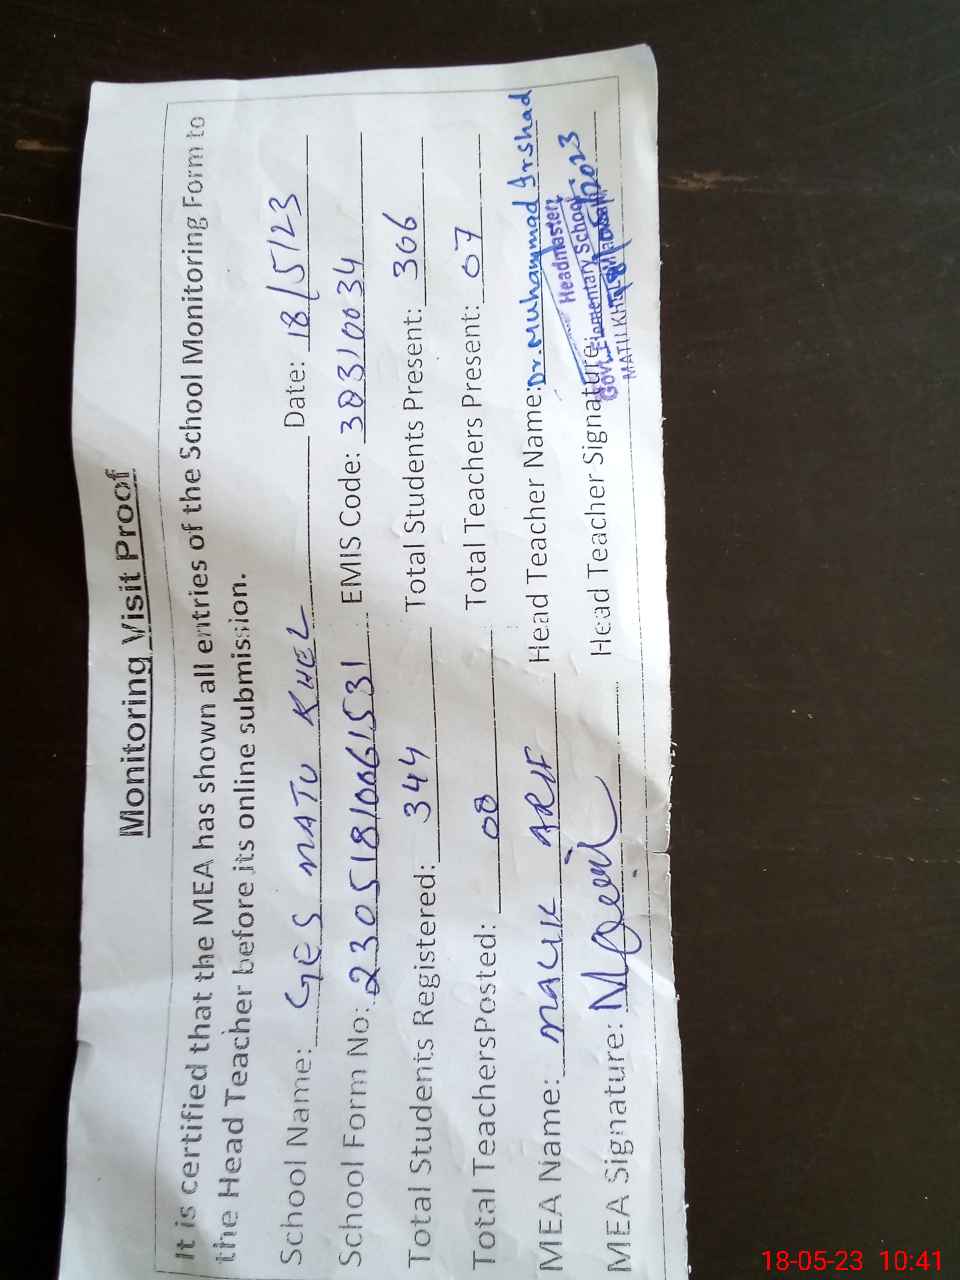 Monitoring Visit Proof
It is certified that the MEA has shown all entries of the School Monitoring Form to
the Head Teacher before its online submission.
School Name: GES MATU KHEL Date: 18/5/23
School Form No: 23051810061531 EMIS Code: 38310034
Total Students Registered: 344 Total Students Present: 306
Total TeachersPosted: 08 Total Teachers Present: 07
MEA Name: MALIK ARIF Head Teacher Name: Dr. Muhammad Arshad
MEA Signature: Head Teacher Signature:
Headmaster
Govt. Elementary School
MATU KHEL
18-05-23 10:41